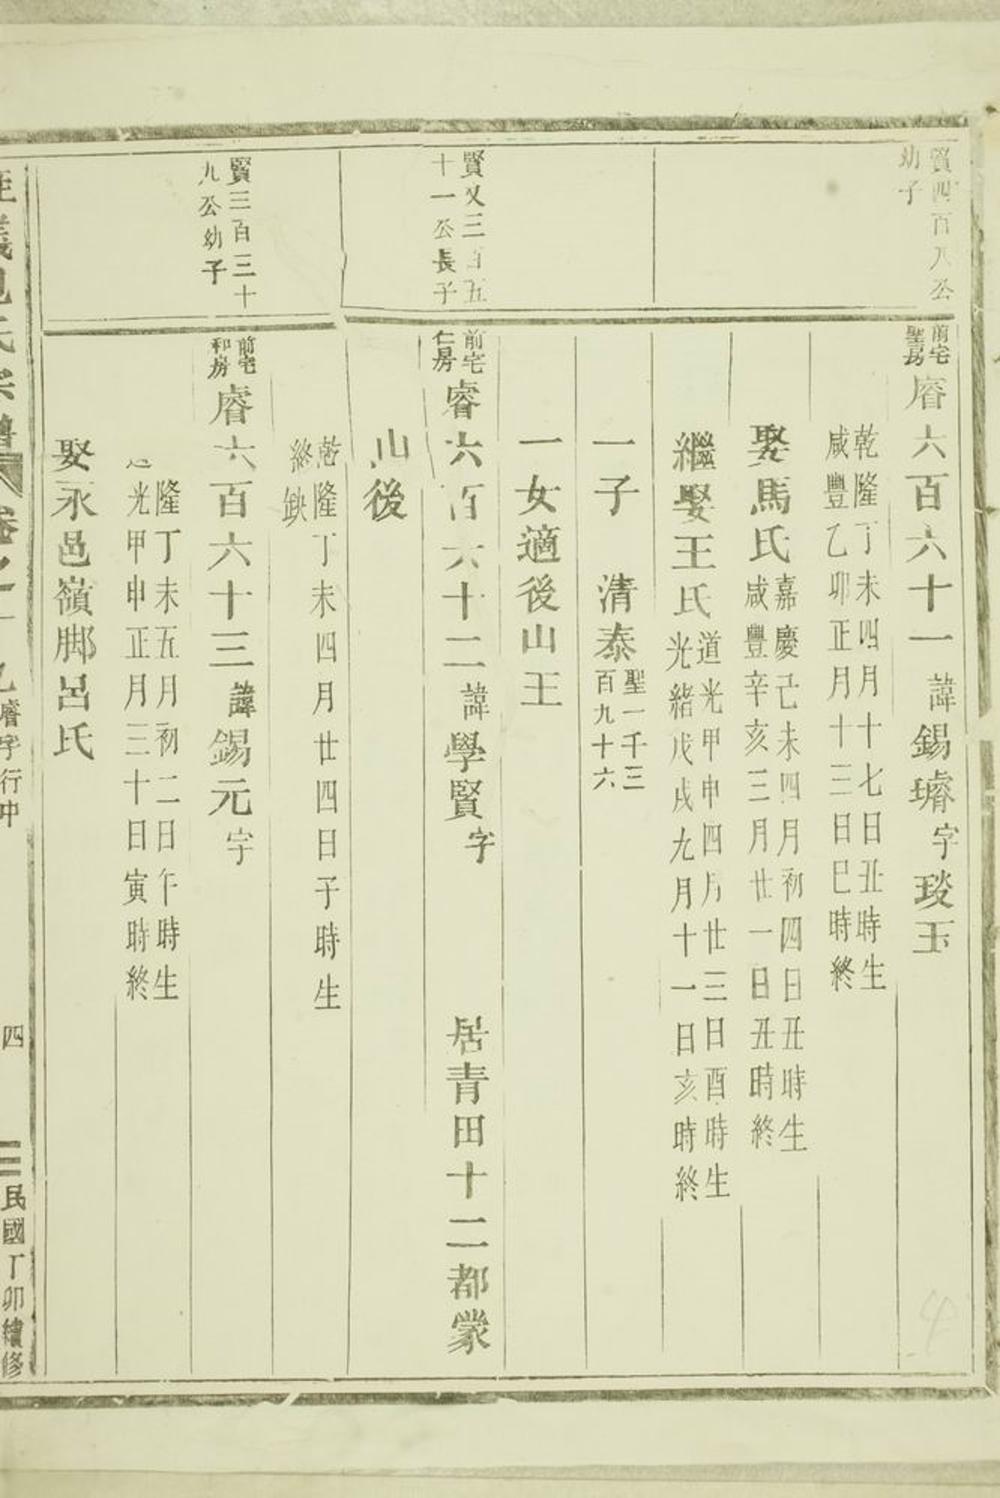 賢四百八公
幼子
前宅
聖房
睿六百六十一諱錫璿字琰玉
乾隆丁未四月十七日丑時生
咸豐乙卯正月十三日巳時終
娶馬氏
嘉慶己未四月初四日丑時生
咸豐辛亥三月廿一日丑時終
繼娶王氏
道光甲申四月廿三日酉時生
光緒戊戌九月十一日亥時終
一子 清泰
聖一千三
百九十六
一女適後山王
賢又三百五
十一公長子
前宅
仁房
睿六百六十二諱學賢字 居青田十二都蒙
山後
乾隆丁未四月廿四日子時生
終缺
賢三百三十
九公幼子
前宅
和房
睿六百六十三諱錫元字
隆丁未五月初二日午時生
光甲申正月三十日寅時終
娶永邑嶺脚呂氏
氏宗譜 卷之 睿字行中 四 民國丁卯續修